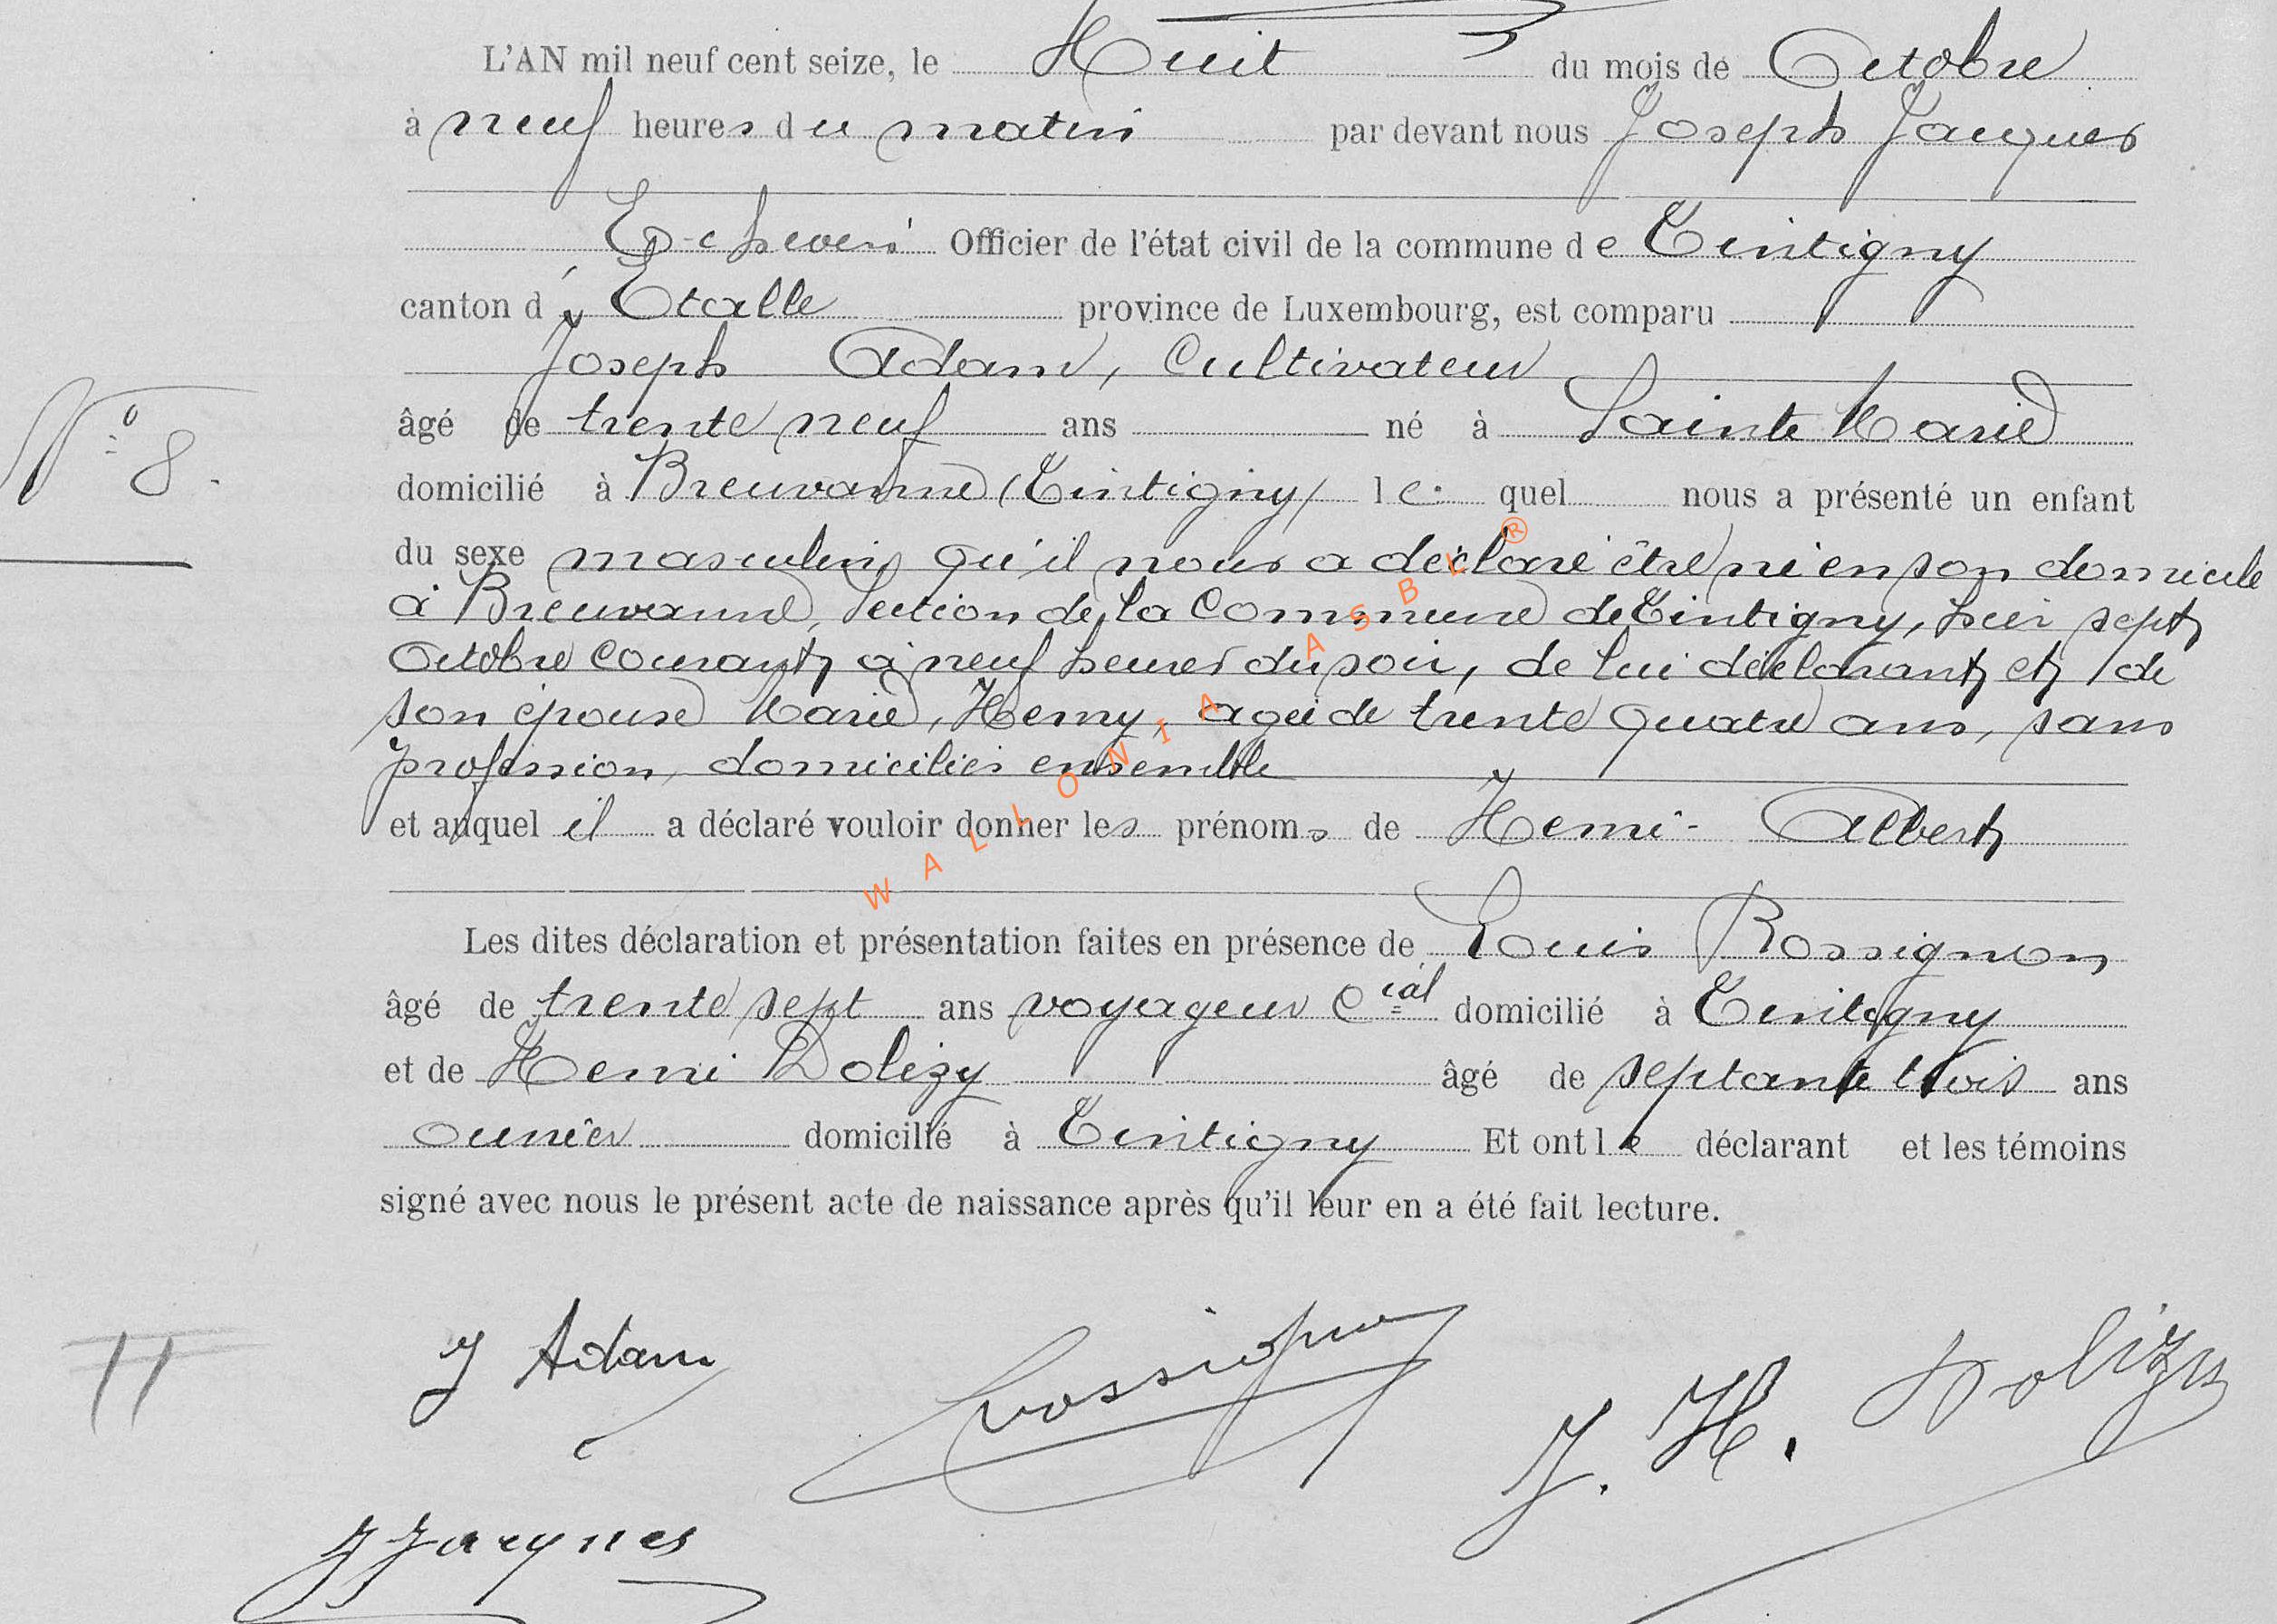 L'AN mil neuf cent seize, le Huit du mois de Octobre
à neuf heures du matin par devant nous Joseph Jacques
Echevin Officier de l'état civil de la commune de Tintigny
canton d' Etalle province de Luxembourg, est comparu
Joseph Adam, Cultivateur
N° 8.
âgé de trente neuf ans né à Sainte Marie
domicilié à Breuvanne (Tintigny) lequel nous a présenté un enfant
du sexe masculin qu'il nous a déclaré être né en son domicile
à Breuvanne, Section de la Commune de Tintigny, hier sept
Octobre courant à neuf heures du soir, de lui déclarant et de
son épouse Marie, Henry, agée de trente quatre ans, sans
profession, domiciliés ensemble
et auquel il a déclaré vouloir donner les prénoms de Henri - Albert
Les dites déclaration et présentation faites en présence de Louis Rossignon
âgé de trente sept ans voyageur Cial domicilié à Tintigny
et de Henri Dolizy âgé de septante trois ans
ouvrier domicilié à Tintigny Et ont le déclarant et les témoins
signé avec nous le présent acte de naissance après qu'il leur en a été fait lecture.
WALLONIA ASBL ®
J Adam Rossignon J. H. Dolizy
11
J Jacques